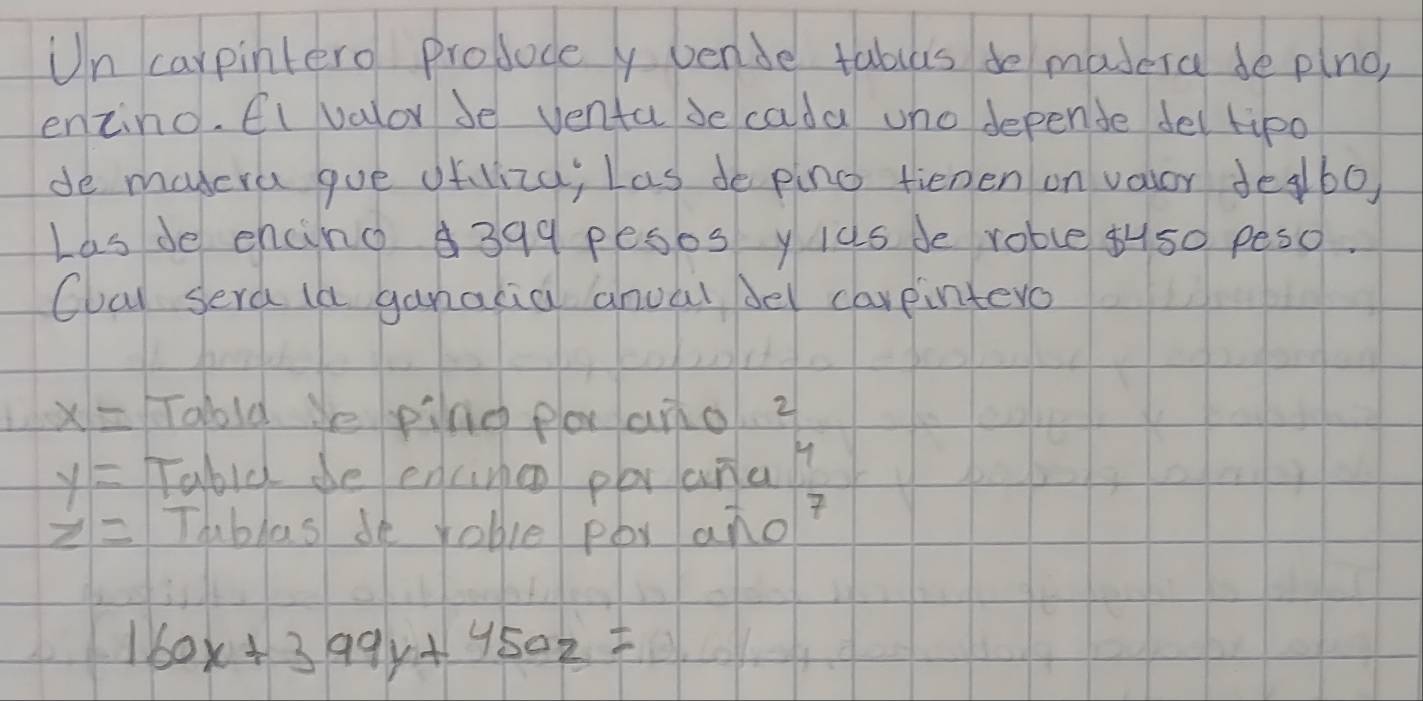 Un carpintero produce y vende tablas de madera de pino,
enzino. El valor de venta de cada uno depende del tipo
de madera que utiliza; Las de pino tienen un valor de $160,
Las de encino $399 pesos y las de roble $450 peso.
Cual sera la ganacia anual del carpintero
x = Tabla de pino por año 2
y = Tabla de encino por año 4
z = Tablas de roble por año 7
160x + 399y + 450z =